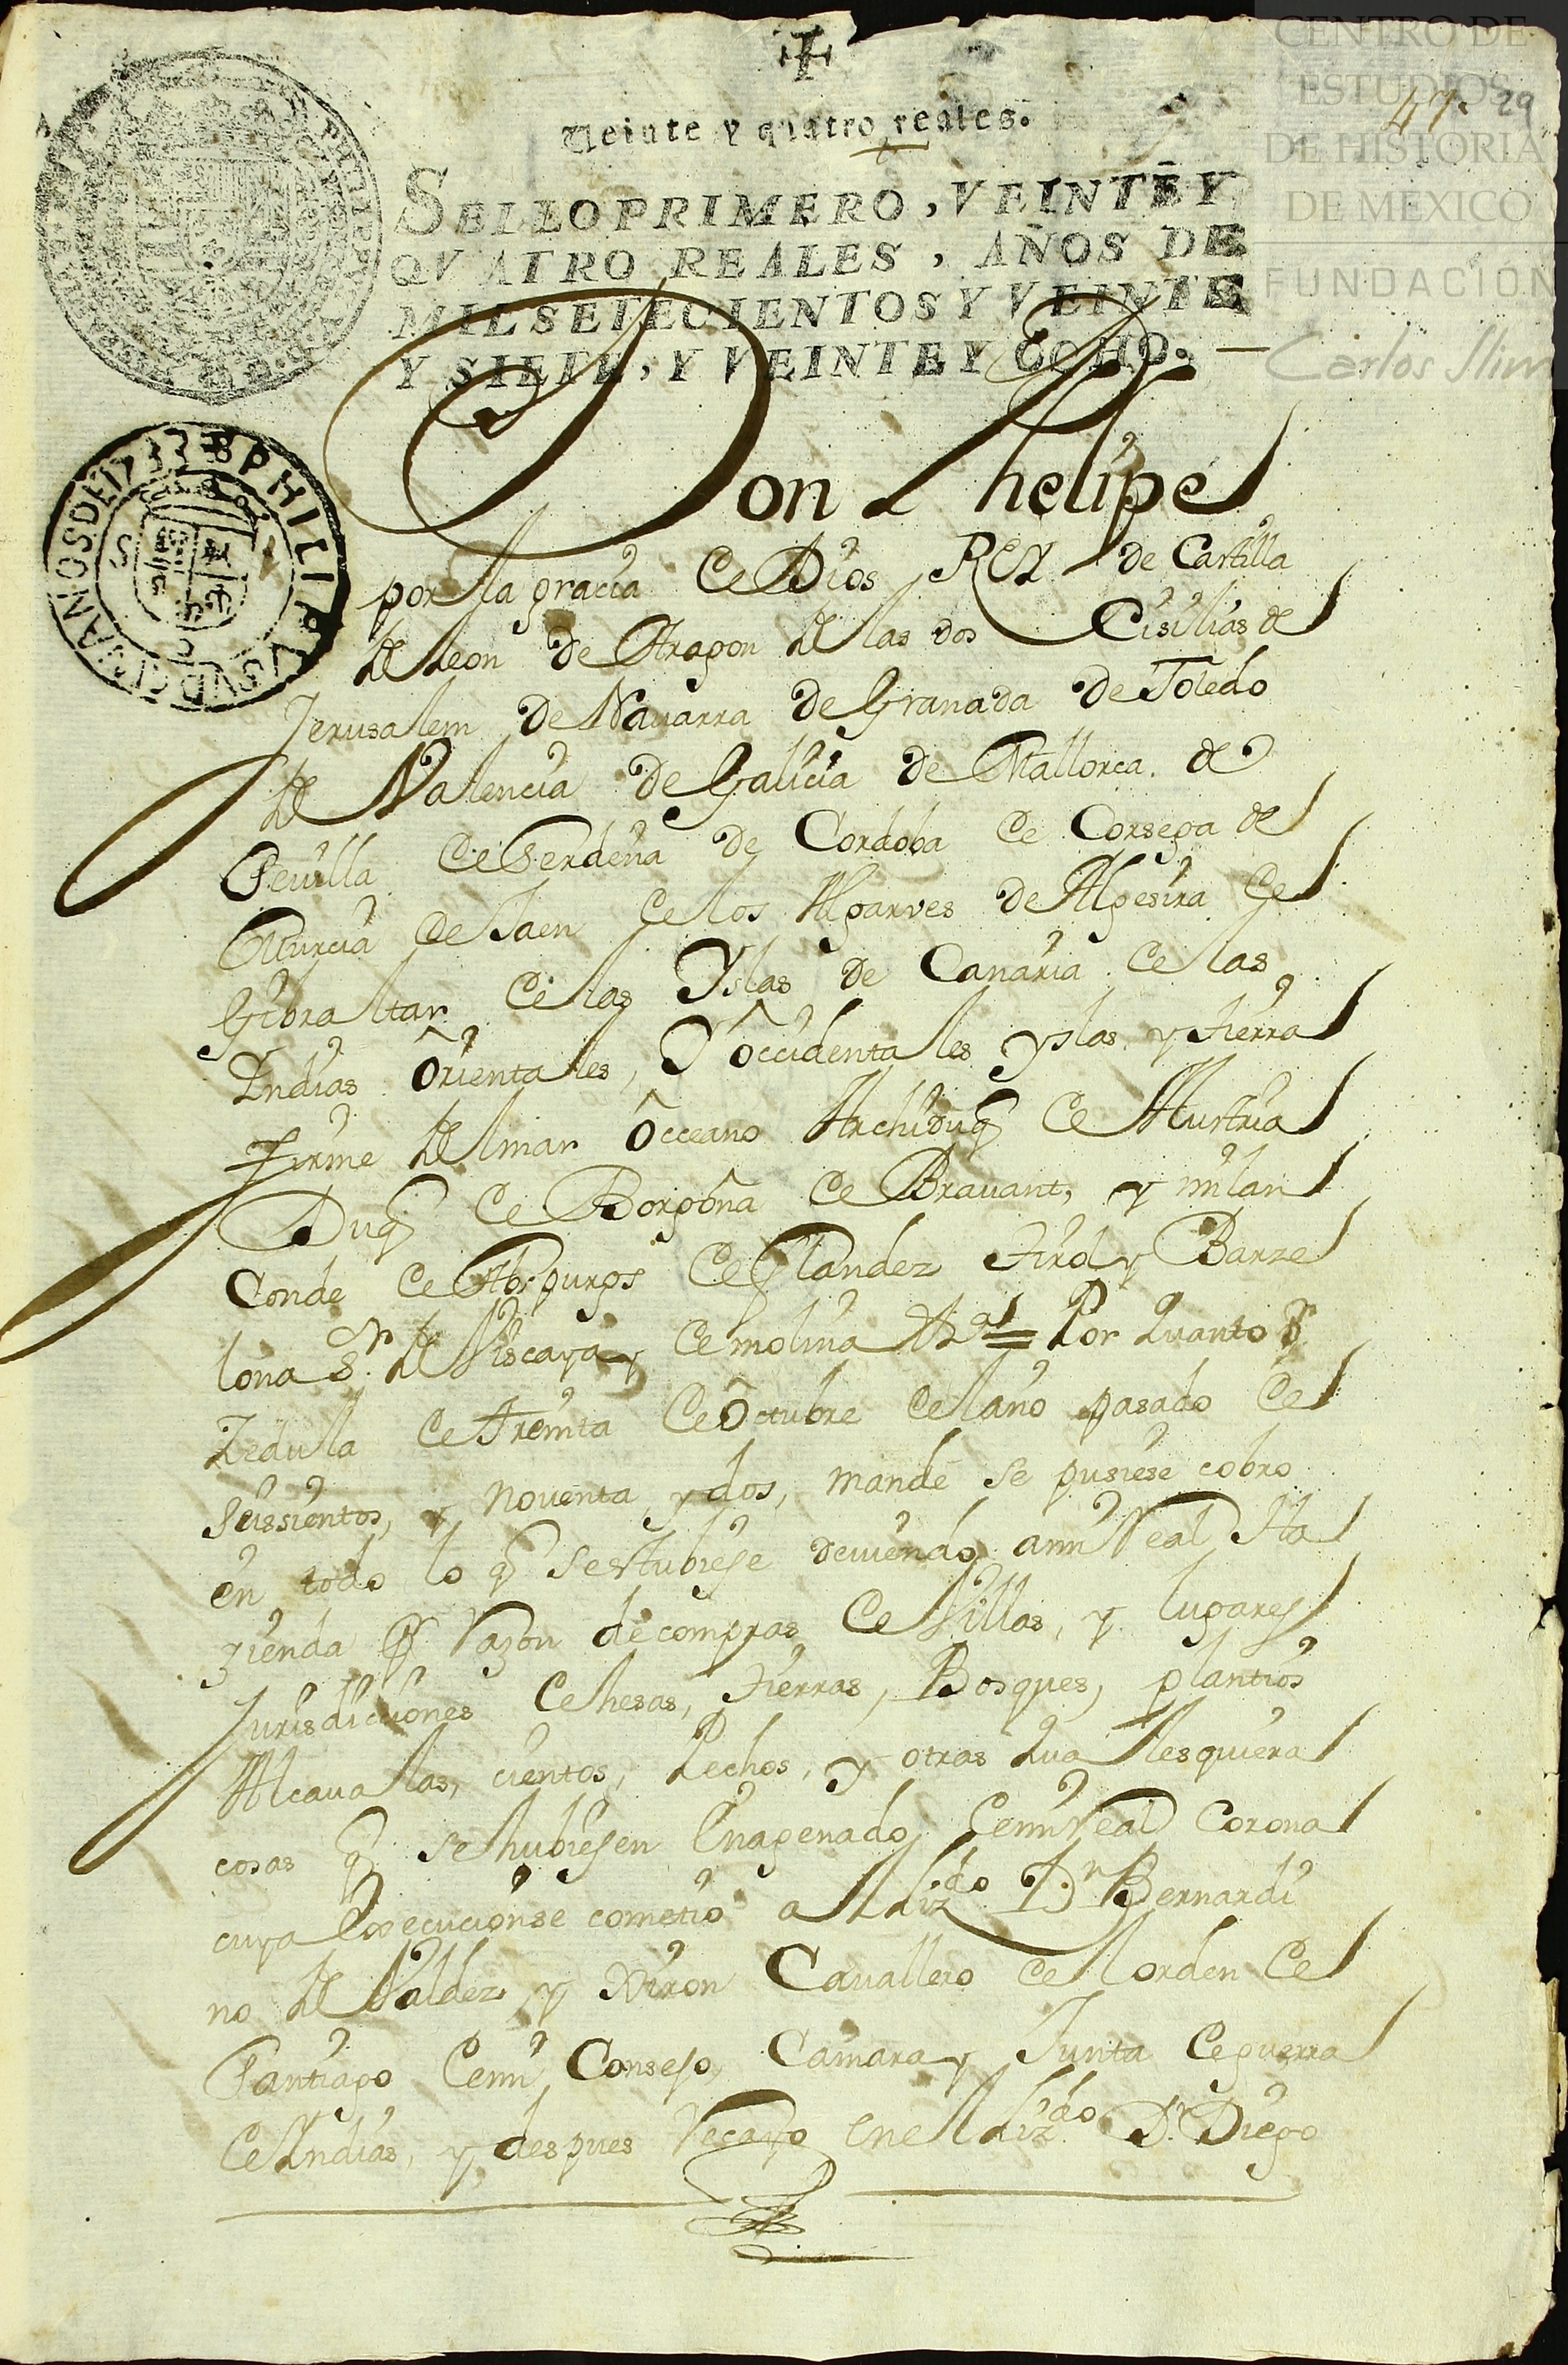 CENTRO DE
ESTUDIOS
DE HISTORIA
DE MEXICO
FUNDACIÓN
Carlos Slim
47. 29
Veinte y quatro reales.
SELLO PRIMERO, VEINTE Y
QVATRO REALES, AÑOS DE
MIL SETECIENTOS Y VEINTE
Y SIETE, Y VEINTE Y OCHO.
PHILIPVS V D G
AÑOS DE 1733
Don Phelipe
por la gracia de Dios REY de Castilla
de Leon de Aragon de las dos Cisilias de
Jerusalem de Nauarra de Granada de Toledo
de Valencia de Galicia de Mallorca. de
Seuilla de Serdeña de Cordoba de Corsega de
Murcia de Jaen de los Algarves de Algesira de
Gibraltar de las Yslas de Canaria de las
Indias Orientales, Y Occidentales yslas y tierra
firme del mar Occeano Archiduq de Austria
Duq de Borgoña de Bravant, y milan
Conde de Abspurgs de Flandez tirol y Barze
lona Sr. de Viscaya y de molina &a = Por Quanto Pr
Zedula de treinta de Octubre del año pasado de
seissientos, y noventa, y dos, mandé se pusiese cobro
en todo lo q se estubiese deuiendo ami Real Ha
zienda Pr Razon de compras de Villas, y lugares
Jurisdicciones dehesas, tierras, Bosques, plantios
Alcaualas, cientos, Pechos, y otras qualesquiera
cosas q se hubiesen Enagenado demi Real Corona
cuya Execucion se cometió al Lizdo Dn Bernardi
no de Valdez y Xiron Cauallero del orden de
Santiago demi Consejo, Camara y Junta de guerra
de Indias, y despues Recayo en el Lizdo Dn Diego